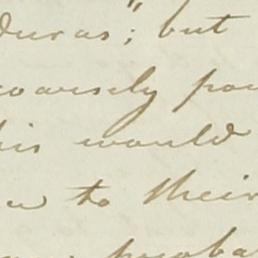 duras"; but
coarsely pou
his would
w to their
, probab